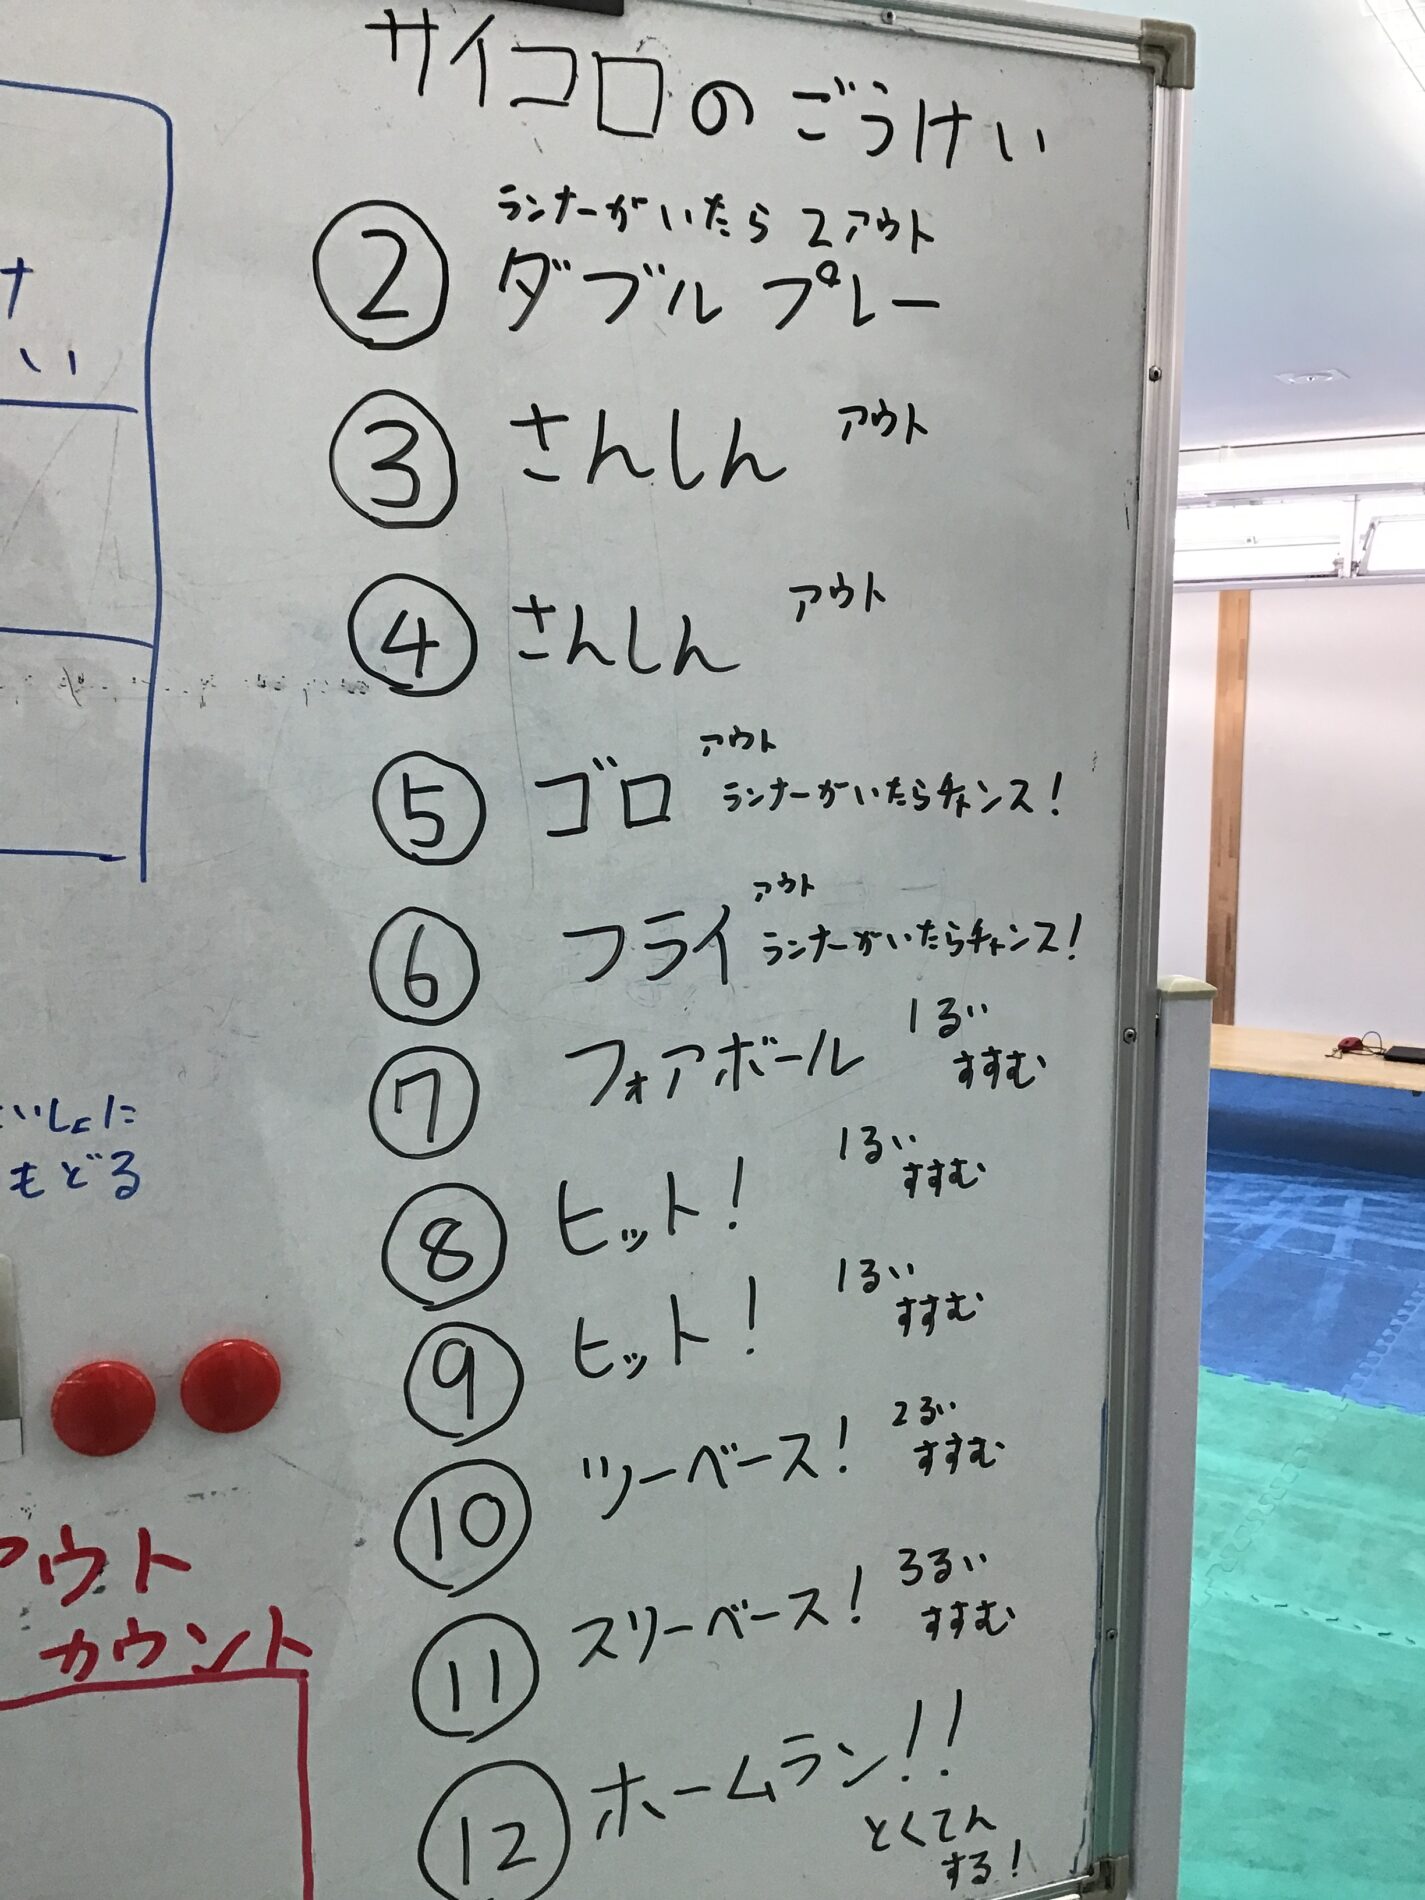 サイコロのごうけい
ランナーがいたら 2アウト
② ダブルプレー
③ さんしん アウト
④ さんしん アウト
⑤ ゴロ アウト
ランナーがいたらチャンス!
⑥ フライ アウト
ランナーがいたらチャンス!
⑦ フォアボール 1るい
すすむ
⑧ ヒット! 1るい
すすむ
⑨ ヒット! 1るい
すすむ
⑩ ツーベース! 2るい
すすむ
⑪ スリーベース! 3るい
すすむ
⑫ ホームラン!!
とくてん
する!
いしょに
もどる
アウト
カウント